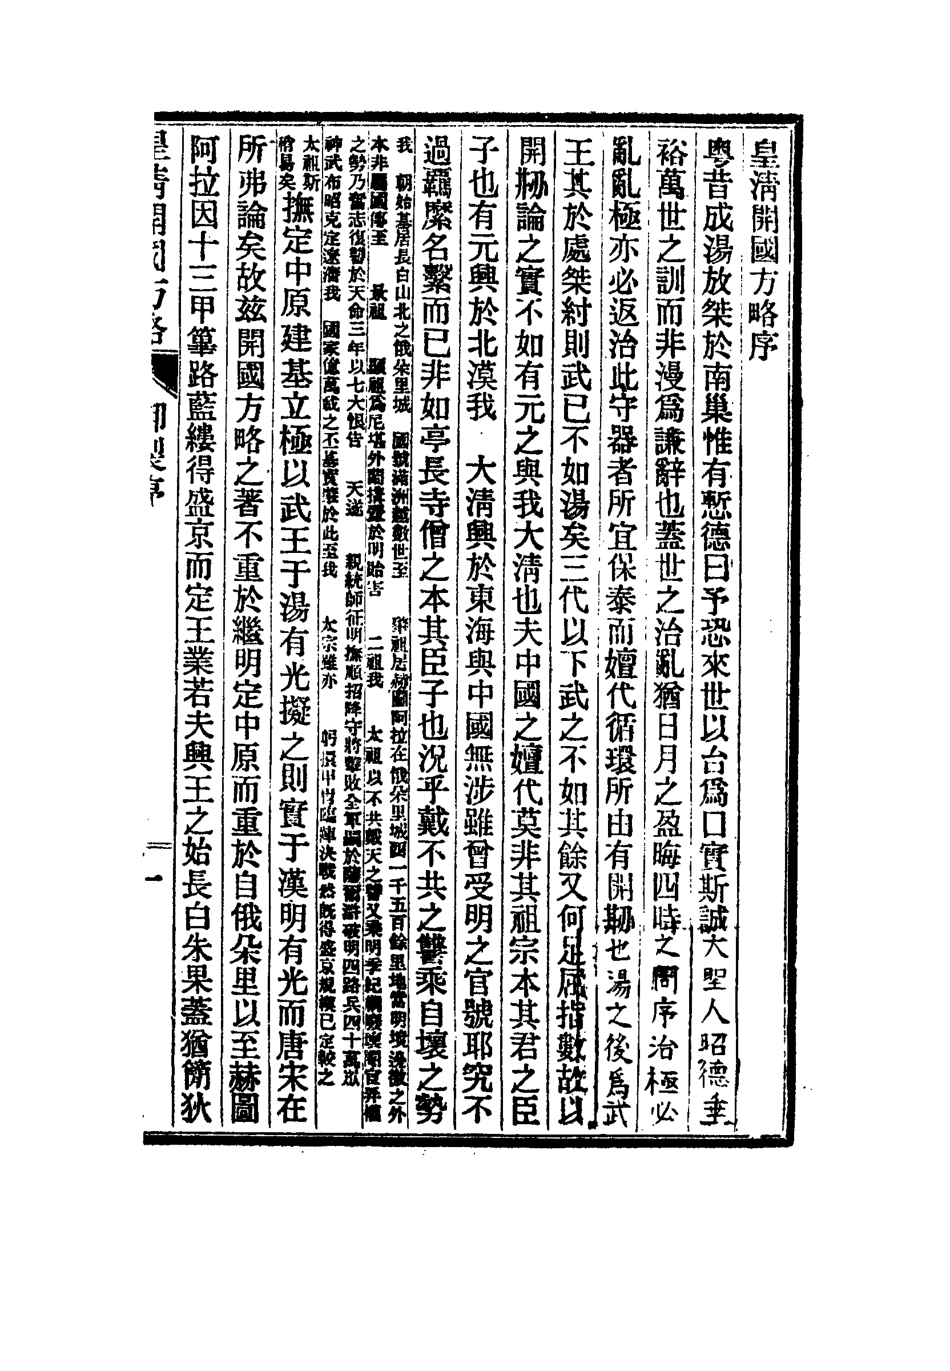 皇淸開國方略序
粤昔成湯放桀於南巢惟有慙德曰予恐來世以台爲口實斯誠大聖人昭德垂
裕萬世之訓而非漫爲謙辭也蓋世之治亂猶日月之盈晦四時之序治極必
亂亂極亦必返治此守器者所宜保泰而嬗代循環所由有開刱也湯之後爲武
王其於處桀紂則武已不如湯矣三代以下武之不如其餘又何足屈指數故以
開刱論之實不如有元之與我大淸也夫中國之嬗代莫非其祖宗本其君之臣
子也有元興於北漠我 大淸興於東海與中國無涉雖曾受明之官號耶究不
過羈縻名繫而已非如亭長寺僧之本其臣子也況乎戴不共之讐乘自壞之勢
我 朝始基居長白山北之俄朶里城 國號滿洲越數世至 肇祖居赫圖阿拉在俄朶里城西一千五百餘里地當明境邊徼之外
本非屬國傳至 景祖 顯祖爲尼堪外蘭搆釁於明貽害 二祖我 太祖以不共戴天之讐又乘明季紀綱廢壞閹官弄權
之勢乃奮志復讐於天命三年以七大恨告 天遂 親統師征明撫順招降守將擊敗全軍嗣於薩爾滸破明四路兵四十萬以
神武布昭克定遼瀋我 國家億萬載之丕基實肇於此至我 太宗雖亦 躬擐甲冑臨陣決戰然旣得盛京規模已定較之
太祖斯
稍易矣
撫定中原建基立極以武王于湯有光擬之則實于漢明有光而唐宋在
所弗論矣故茲開國方略之著不重於繼明定中原而重於自俄朶里以至赫圖
阿拉因十三甲篳路藍縷得盛京而定王業若夫興王之始長白朱果蓋猶簡狄
皇淸開國方略 御製序 一